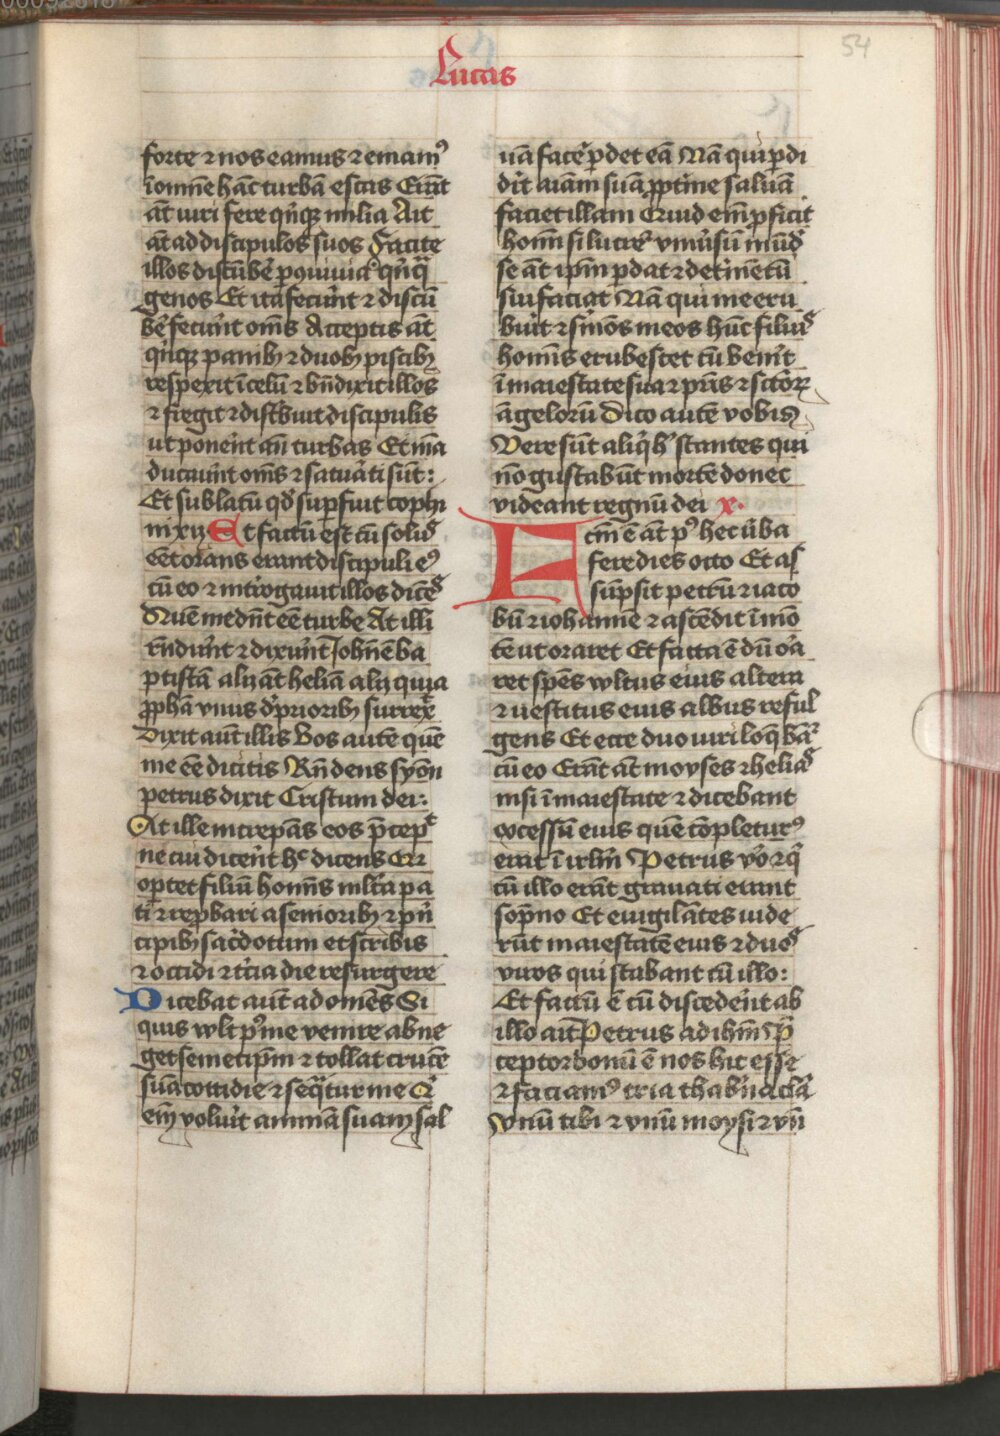 54
Lucas
forte ⁊ nos eamus ⁊ emamꝰ
ī omnē hāc turbā escas Erāt
āt uiri fere qnꝗ milia Ait
āt ad discipulos suos Facite
illos discūbē ꝑ ꝯuiuia qnq̄
genos Et ita fecūnt ⁊ discū
bē fecūnt om̄s Acceptis āt
qnꝗ panibꝫ ⁊ duobꝫ piscibꝫ
respexit ī celū ⁊ bn̄dixit illos
⁊ fregit ⁊ distbuit discipulis
ut ponent an̄ turbas Et mā
ducauūt om̄s ⁊ satuati sūt:
Et sublatū qd̄ suꝑfuit cophi
ni xij Et factū est cū solus
eēt orans erant discipuli eꝰ
cū eo ⁊ introgauit illos dicēs
Quē me dn̄t eē turbe At illi
rn̄dūnt ⁊ dixūnt Johnē ba
ptistā alij āt heliā alij quia
ꝓpha vnus de priorib surrex
Dixit aūt illis Vos autē quē
me eē dicitis Rn̄dens symō
petrus dixit Cristum dei:
At ille increpās eos p̄cepͭ
ne cui dicent hͨ dicens Qꝛ
oportet filiū homīs mlta pa
ti ⁊ repbari a seniorib ⁊ pn̄
cipibꝫ sacdotum et scribis
⁊ occidi ⁊ tcia die resurgere
Dicebat aūt ad omēs Si
quis wlt pꝰ me venire abne
get semetipm̄ ⁊ tollat crucē
suā cottidie ⁊ seq̄tur me Q
em̄ voluit animā suam sal
uā face ꝑdet eā Nā qui ꝑdi
dit aīam suā ꝓpt me saluā
faciet illam Quid em̄ ꝓficit
homī si lucre vniusū mūd
se āt ipm̄ ꝑdat ⁊ detmentū
sui faciat Nā qui me eru
buit ⁊ smōs meos hūc filius
homīs erubescet cū venit
ī maiestate sua ⁊ pris ⁊ sctorꝝ
āgelorū Dico autē vobis
Vere sūt aliq̄ hͨ stantes qui
nō gustabūt mortē donec
videant regnū dei x.
Fctm̄ ē āt pꝰ hec ūba
fere dies octo Et as
sūpsit petrū ⁊ iaco
bū ⁊ iohannē ⁊ ascēdit ī mō
tē ut oraret Et facta ē dū oa
ret spēs wltus eius altera
⁊ uestitus eius albus reful
gens Et ecce duo uiri loq̄bāt
cū eo Erāt āt moyses ⁊ helias
uisi ī maiestate ⁊ dicebant
excessū eius quē cōpleturꝰ
erat ī irlm̄ Petrus vo ⁊ q
cū illo erāt grauati erant
sopno Et euigilātes uide
rūt maiestatē eius ⁊ duos
viros qui stabant cū illo:
Et factū ē cū discedent ab
illo ait Petrus ad ihm̄ P̄
ceptor bonū ē nos hic esse
⁊ faciamꝰ tria thabnacla
vnū tibi ⁊ vnū moysi ⁊ vn̄